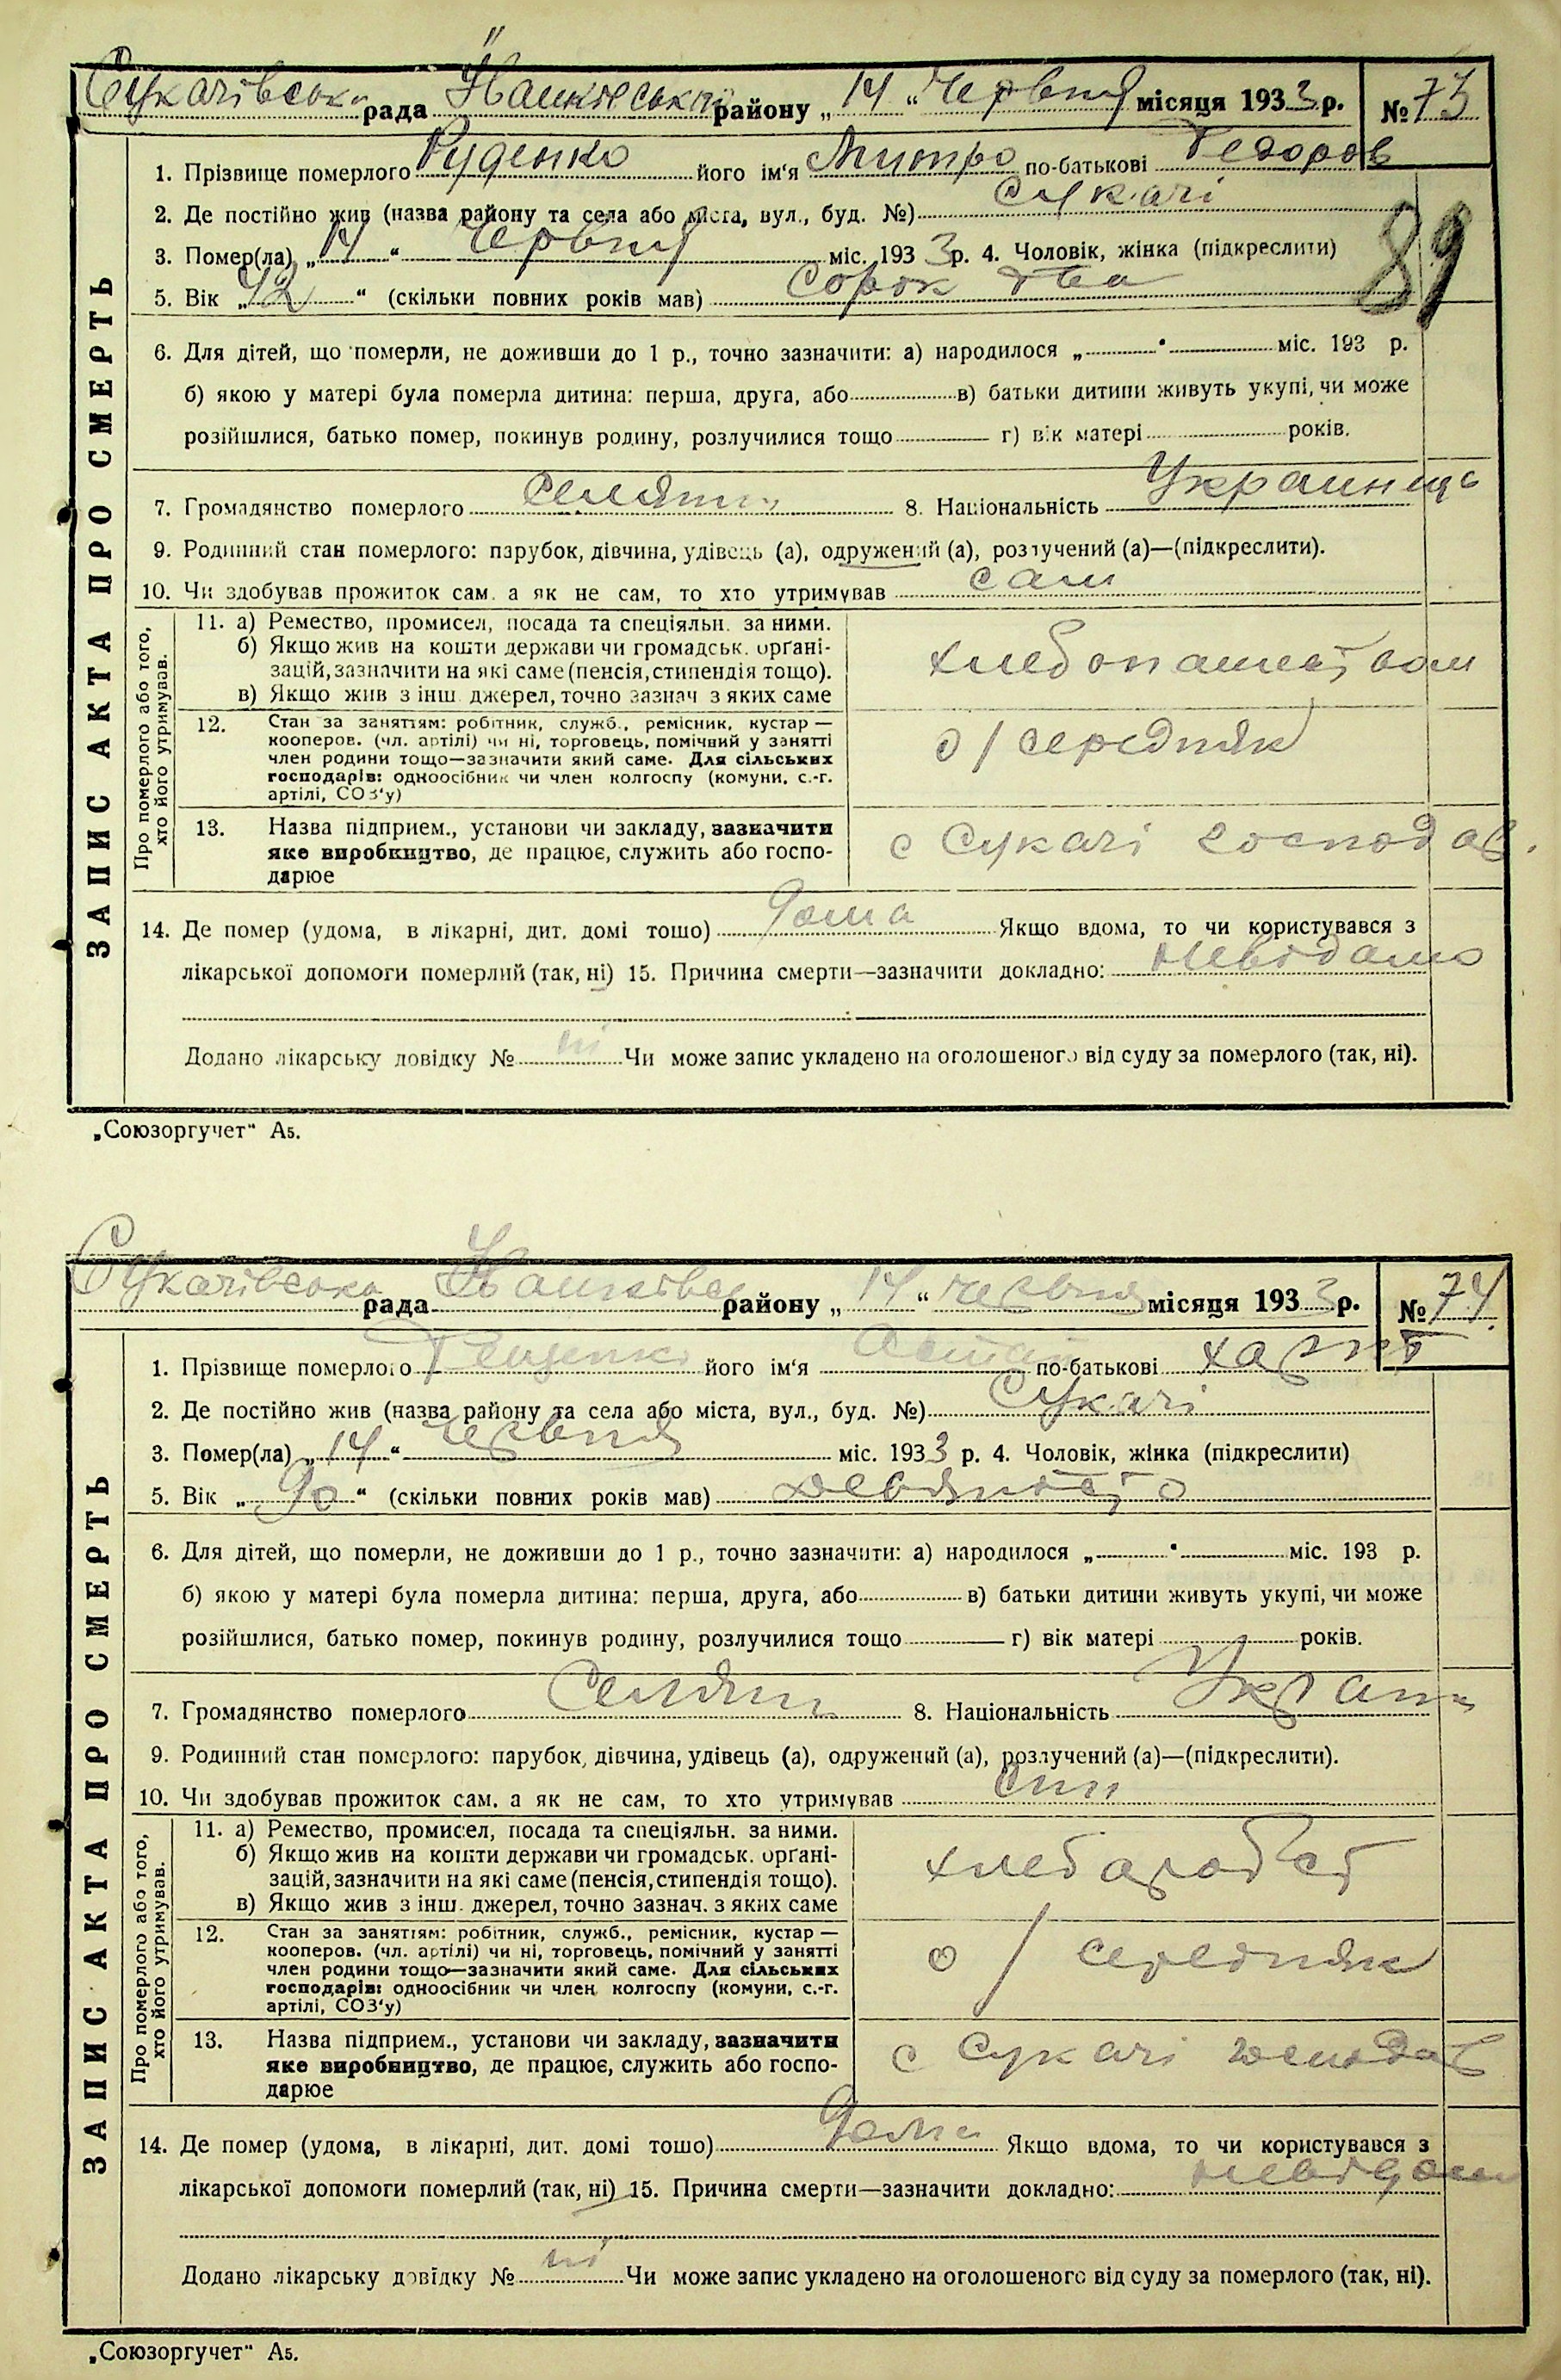 Сукачівська рада Іванківський району „ 14 “ червня місяця 1933 р. № 73
1. Прізвище померлого Руденко його ім'я Митро по-батькові Федоров
2. Де постійно жив (назва району та села або міста, вул., буд. №) Сукачі
3. Помер(ла) „ 14 “ червня міс. 193 3 р. 4. Чоловік, жінка (підкреслити)
89
5. Вік „ 42 “ (скільки повних років мав) Сорок два
6. Для дітей, що померли, не доживши до 1 р., точно зазначити: а) народилося „ “ міс. 193 р.
б) якою у матері була померла дитина: перша, друга, або в) батьки дитини живуть укупі, чи може
розійшлися, батько помер, покинув родину, розлучилися тощо г) вік матері років.
7. Громадянство померлого селянин 8. Національність Украинець
9. Родинний стан померлого: парубок, дівчина, удівець (а), одружений (а), розлучений (а)—(підкреслити).
10. Чи здобував прожиток сам, а як не сам, то хто утримував сам
Про померлого або того, хто його утримував.
11. а) Ремество, промисел, посада та спеціяльн. за ними.
б) Якщо жив на кошти держави чи громадськ. орґані-
зацій, зазначити на які саме (пенсія, стипендія тощо).
в) Якщо жив з інш. джерел, точно зазнач з яких саме
хлебопашеством
12. Стан за заняттям: робітник, служб., ремісник, кустар —
кооперов. (чл. артілі) чи ні, торговець, помічний у занятті
член родини тощо—зазначити який саме. Для сільських
господарів: одноосібник чи член колгоспу (комуни, с.-г.
артілі, СОЗ'у)
о/середняк
13. Назва підприєм., установи чи закладу, зазначити
яке виробництво, де працює, служить або госпо-
дарює
с Сукачі господар.
14. Де помер (удома, в лікарні, дит. домі тощо) дома Якщо вдома, то чи користувався з
лікарської допомоги померлий (так, ні) 15. Причина смерти—зазначити докладно: невідомо
Додано лікарську довідку № ні Чи може запис укладено на оголошеного від суду за померлого (так, ні).
ЗАПИС АКТА ПРО СМЕРТЬ
„Союзоргучет“ А5.
Сукачівська рада Іванківсь району „ 14 “ червня місяця 193 3 р. № 74
1. Прізвище померлого його ім'я по-батькові
2. Де постійно жив (назва району та села або міста, вул., буд. №) Сукачі
3. Помер(ла) „ 14 “ червня міс. 193 3 р. 4. Чоловік, жінка (підкреслити)
5. Вік „ 90 “ (скільки повних років мав) девяносто
6. Для дітей, що померли, не доживши до 1 р., точно зазначити: а) народилося „ “ міс. 193 р.
б) якою у матері була померла дитина: перша, друга, або в) батьки дитини живуть укупі, чи може
розійшлися, батько помер, покинув родину, розлучилися тощо г) вік матері років.
7. Громадянство померлого Селянин 8. Національність Украин
9. Родинний стан померлого: парубок, дівчина, удівець (а), одружений (а), розлучений (а)—(підкреслити).
10. Чи здобував прожиток сам, а як не сам, то хто утримував син
Про померлого або того, хто його утримував.
11. а) Ремество, промисел, посада та спеціяльн. за ними.
б) Якщо жив на кошти держави чи громадськ. орґані-
зацій, зазначити на які саме (пенсія, стипендія тощо).
в) Якщо жив з інш. джерел, точно зазнач. з яких саме
12. Стан за заняттям: робітник, служб., ремісник, кустар —
кооперов. (чл. артілі) чи ні, торговець, помічний у занятті
член родини тощо—зазначити який саме. Для сільських
господарів: одноосібник чи член колгоспу (комуни, с.-г.
артілі, СОЗ'у)
о/середняк
13. Назва підприєм., установи чи закладу, зазначити
яке виробництво, де працює, служить або госпо-
дарює
с Сукачі
14. Де помер (удома, в лікарні, дит. домі тощо) дома Якщо вдома, то чи користувався з
лікарської допомоги померлий (так, ні) 15. Причина смерти—зазначити докладно: невідомо
Додано лікарську довідку № ні Чи може запис укладено на оголошеного від суду за померлого (так, ні).
ЗАПИС АКТА ПРО СМЕРТЬ
„Союзоргучет“ А5.